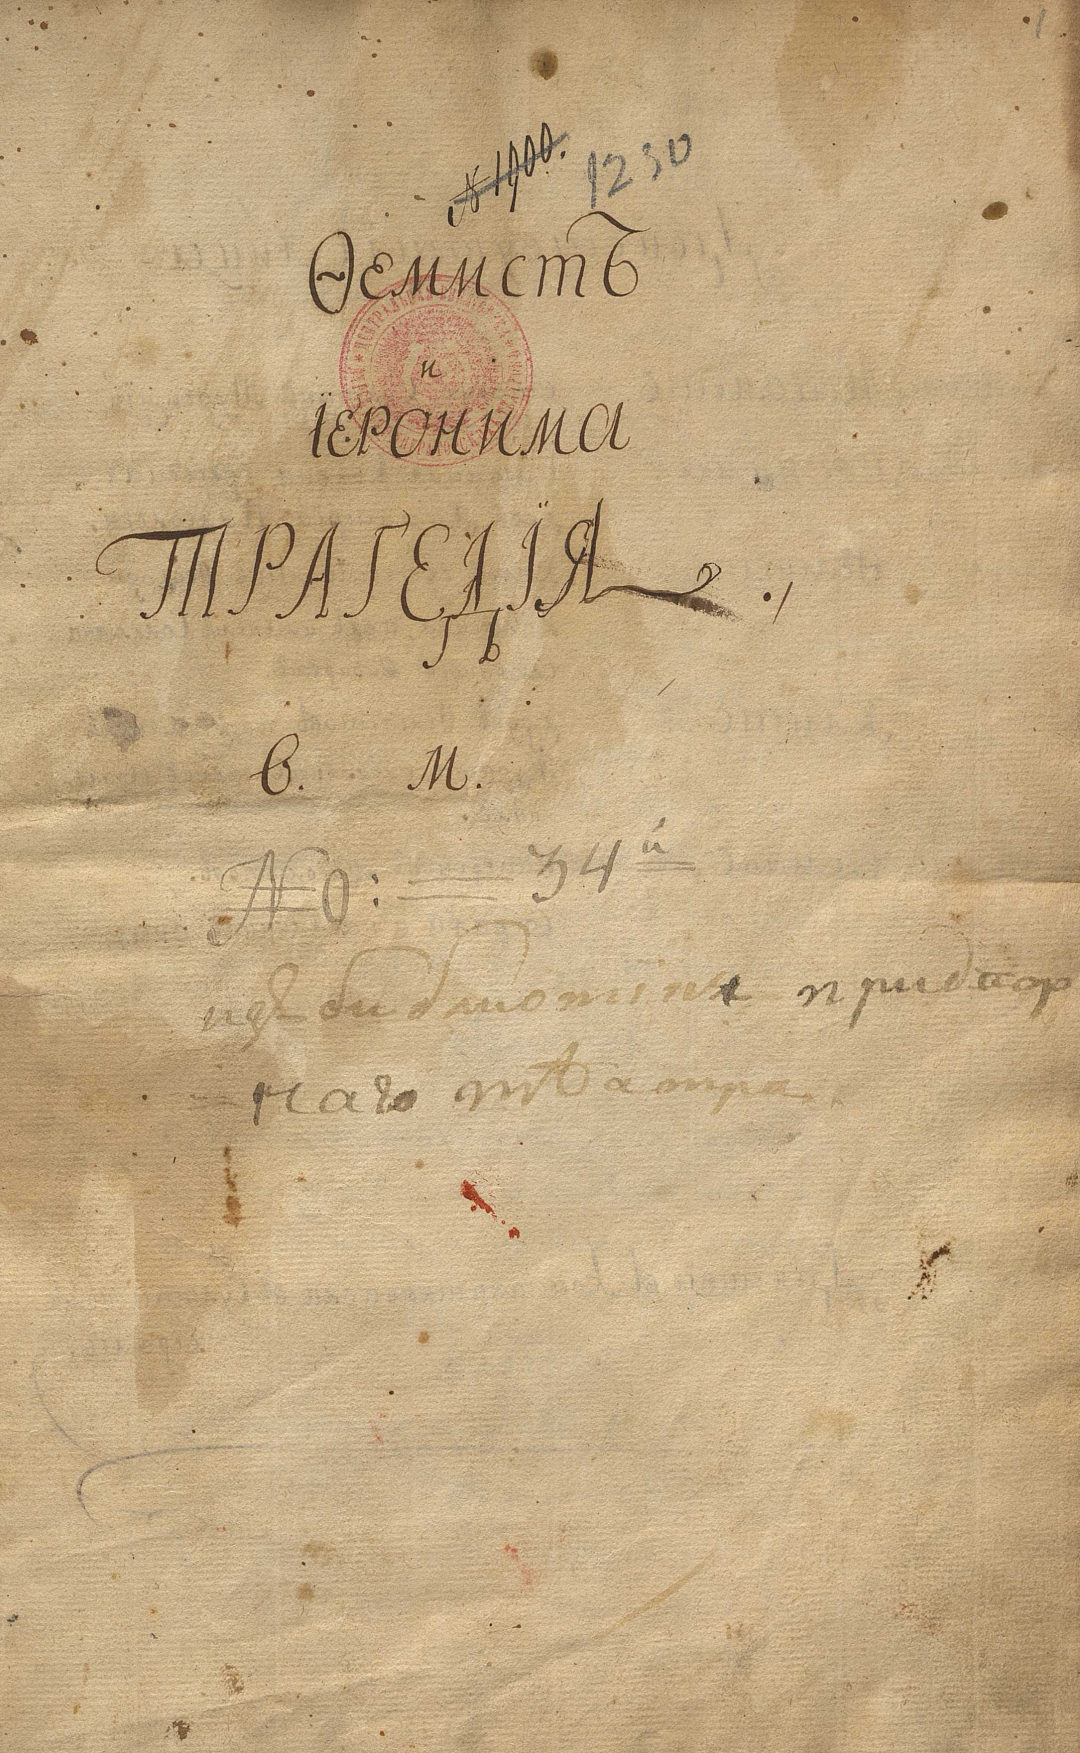 1
№ 1900. 1230
Ѳемистъ
и
Їеронима
ТРАГЕДЇЯ
В. М.
No: 34й
изъ библиотеки придвор
наго тѣатра.